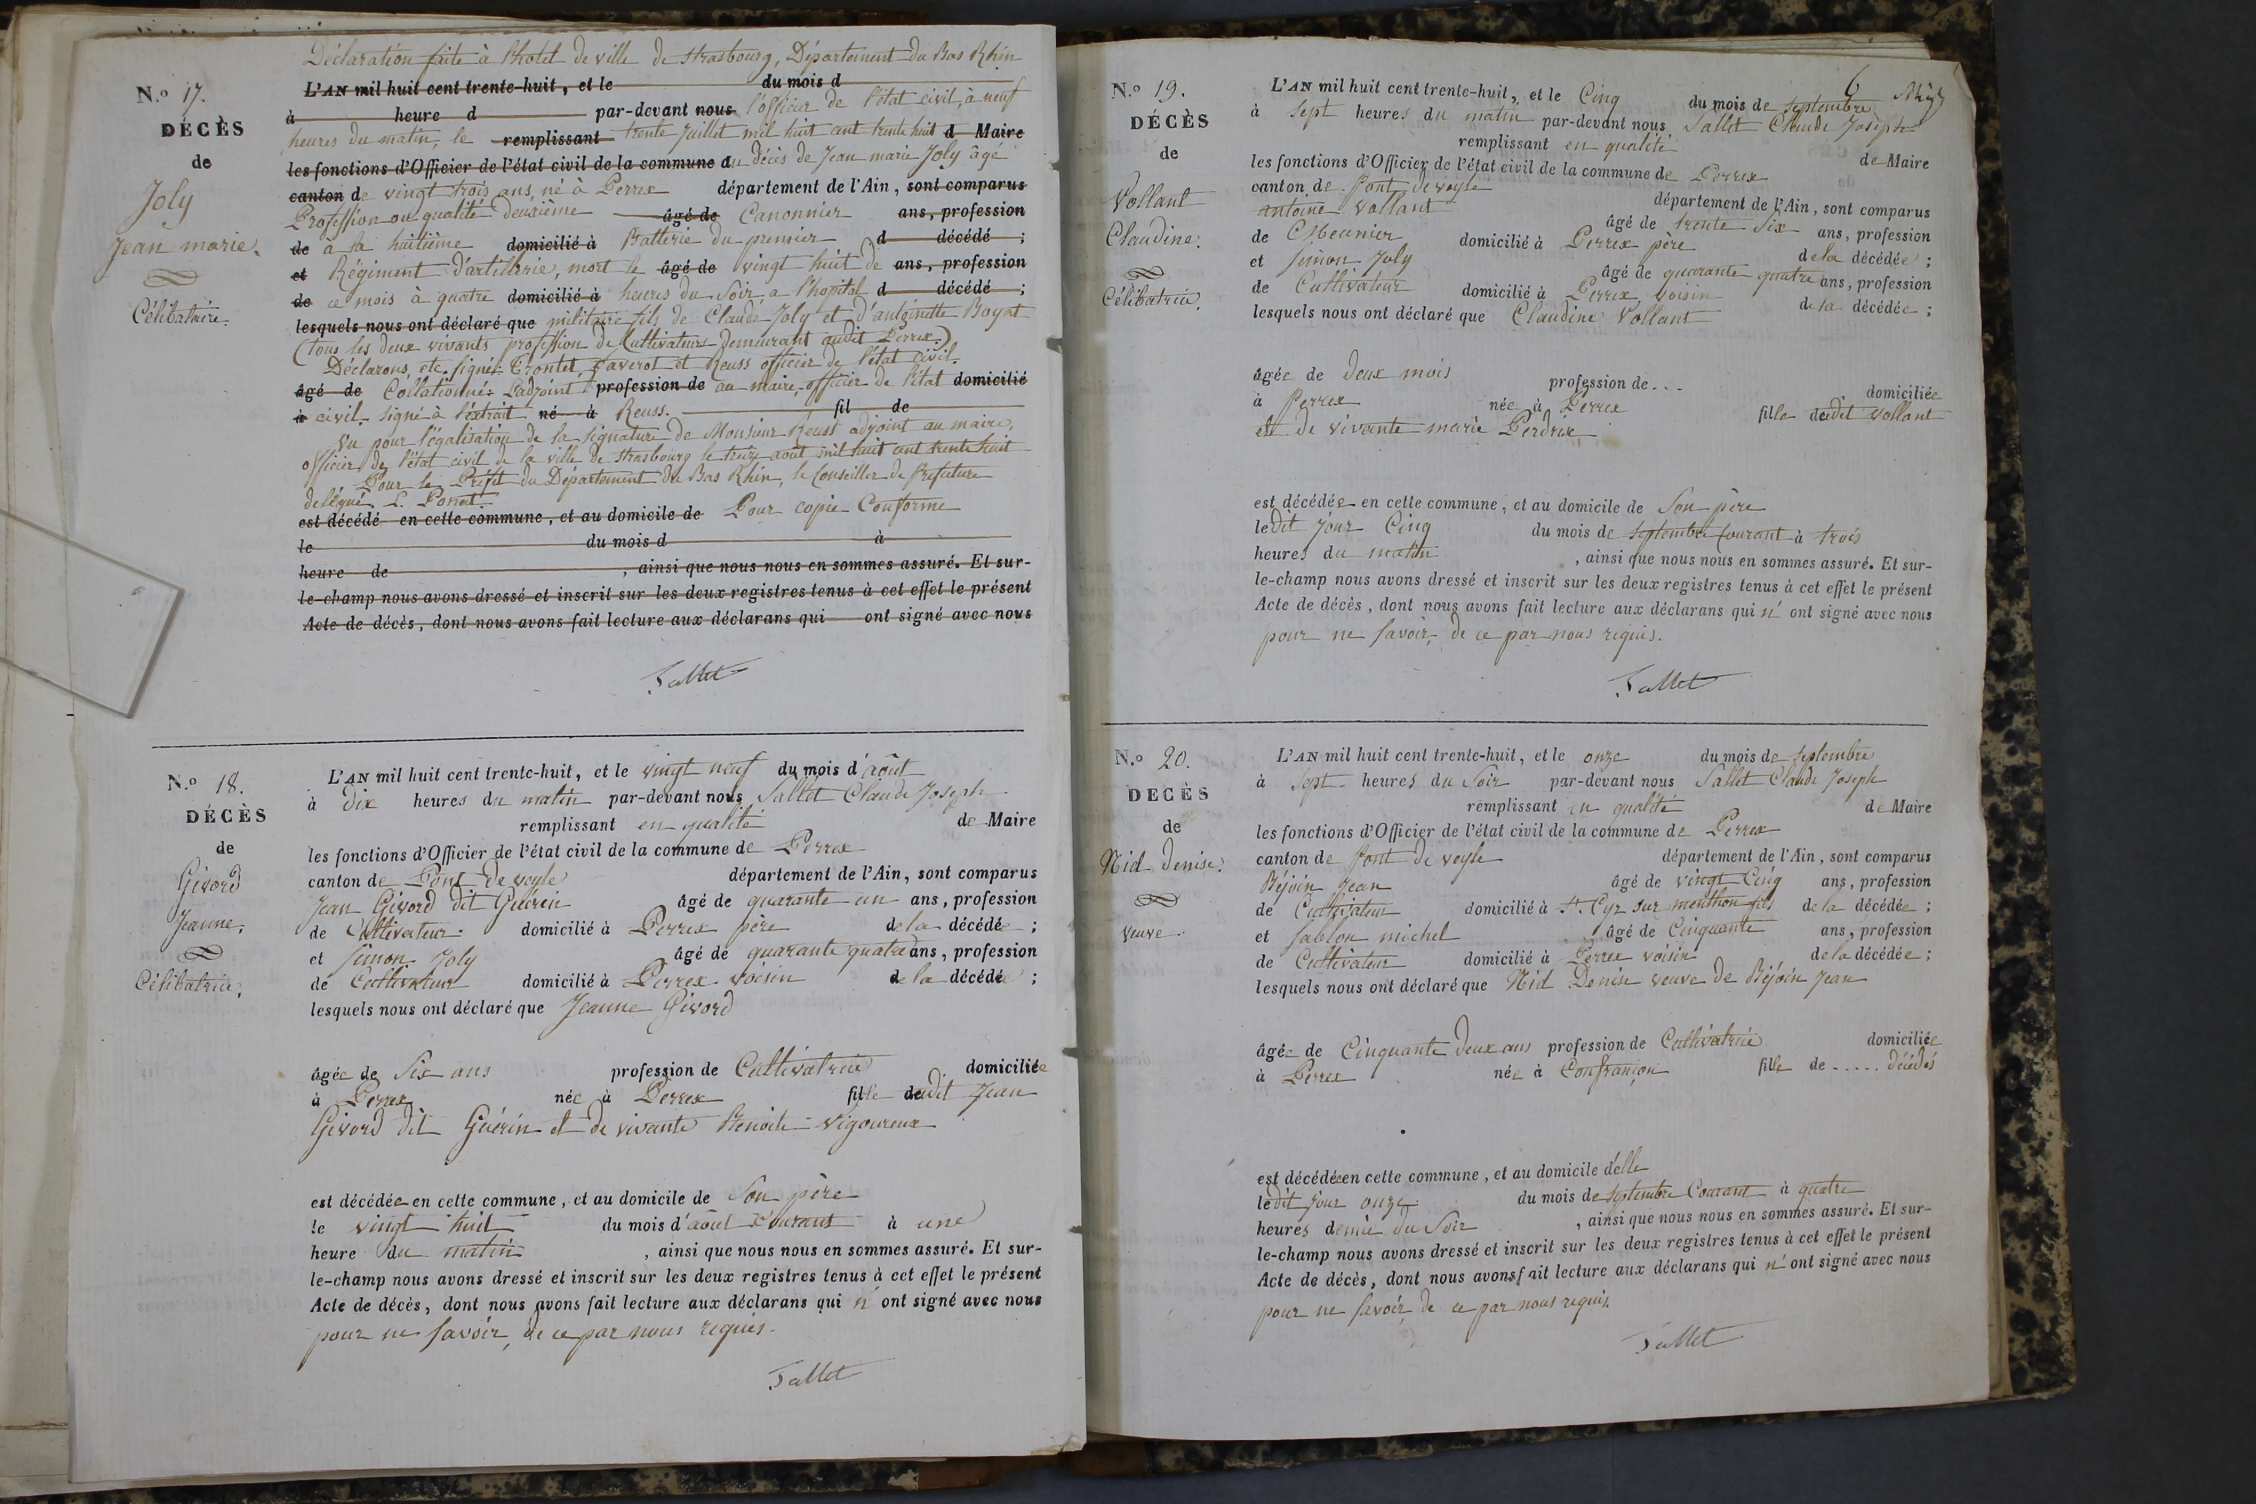 N.º 17.
DÉCÈS
de
Joly
Jean marie.
Célibataire.
Déclaration faite à l'hotel de ville de Strasbourg, Département du Bas Rhin
L'AN mil huit cent trente-huit, et le du mois d
à heure d par-devant nous l'officier de l'état civil, à neuf
heures du matin, le remplissant trente Juillet mil huit cent trente huit d Maire
les fonctions d'Officier de l'état civil de la commune du décès de Jean marie Joly âgé
canton de vingt trois ans, né à Perrex département de l'Ain, sont comparus
Profession ou qualité deuxième âgé de Canonnier ans, profession
de à la huitième domicilié à Batterie du premier d décédé ;
et Régiment d'artillerie, mort le âgé de vingt huit de ans, profession
de ce mois à quatre domicilié à heures du Soir, a l'hopital d décédé ;
lesquels nous ont déclaré que militaire fils de Claude Joly et d'antoinette Boyat
(tous les deux vivants profession de Cultivateurs demeurant audit Perrex.)
Déclarons, etc. signé: Trontet, Faverot et Reuss officier de l'état civil.
âgé de Collationné: L'adjoint profession de au maire, officier de l'état domicilié
à civil. signé à l'extrait né à Reuss. fil de
Vu pour légalisation de la signature de Monsieur Reuss adjoint au maire,
officier de l'état civil de la ville de Strasbourg le treize août mil huit cent trente huit
Pour le Préfet du Département du Bas Rhin, le Conseiller de Préfecture
délégué, L.
est décédé en cette commune, et au domicile de Pour copie Conforme
le du mois d à
heure de , ainsi que nous nous en sommes assuré. Et sur-
le-champ nous avons dressé et inscrit sur les deux registres tenus à cet effet le présent
Acte de décès, dont nous avons fait lecture aux déclarans qui ont signé avec nous
Sallet
N.º 18.
DÉCÈS
de
Givord
Jeanne.
Célibatrice.
L'AN mil huit cent trente-huit, et le vingt neuf du mois d'août
à Dix heures du matin par-devant nous Sallet Claude Joseph
remplissant en qualité de Maire
les fonctions d'Officier de l'état civil de la commune de Perrex
canton de Pont de veyle département de l'Ain, sont comparus
Jean Givord dit Guérin âgé de quarante un ans, profession
de Cultivateur domicilié à Perrex père de la décédée ;
et Simon Joly âgé de quarante quatre ans, profession
de Cultivateur domicilié à Perrex voisin de la décédée ;
lesquels nous ont déclaré que Jeanne Givord
âgée de Six ans profession de Cultivatrice domiciliée
à Perrex née à Perrex fille dudit Jean
Givord dit Guérin et de vivante Benoite Vigoureux
est décédée en cette commune, et au domicile de Son père
le vingt huit du mois d'août Courant à une
heure du matin , ainsi que nous nous en sommes assuré. Et sur-
le-champ nous avons dressé et inscrit sur les deux registres tenus à cet effet le présent
Acte de décès, dont nous avons fait lecture aux déclarans qui n' ont signé avec nous
pour ne savoir, de ce par nous requis.
Sallet
6
N.º 19.
DÉCÈS
de
Vollant
Claudine.
Célibatrice.
L'AN mil huit cent trente-huit, et le Cinq du mois de septembre
à Sept heures du matin par-devant nous Sallet Claude Joseph
remplissant en qualité de Maire
les fonctions d'Officier de l'état civil de la commune de Perrex
canton de Pont de veyle département de l'Ain, sont comparus
antoine Vollant âgé de trente Six ans, profession
de Meunier domicilié à Perrex père de la décédée ;
et Simon Joly âgé de quarante quatre ans, profession
de Cultivateur domicilié à Perrex voisin de la décédée ;
lesquels nous ont déclaré que Claudine Vollant
âgée de deux mois profession de... domiciliée
à Perrex née à Perrex fille dudit Vollant
et de vivante marie Perdrix
est décédée en cette commune, et au domicile de Son père
ledit jour Cinq du mois de septembre Courant à trois
heures du matin , ainsi que nous nous en sommes assuré. Et sur-
le-champ nous avons dressé et inscrit sur les deux registres tenus à cet effet le présent
Acte de décès, dont nous avons fait lecture aux déclarans qui n' ont signé avec nous
pour ne savoir, de ce par nous requis.
Sallet
N.º 20.
DECÈS
de
Nid Denise.
veuve
L'AN mil huit cent trente-huit, et le onze du mois de septembre
à Sept heures du Soir par-devant nous Sallet Claude Joseph
remplissant en qualité de Maire
les fonctions d'Officier de l'état civil de la commune de Perrex
canton de Pont de veyle département de l'Ain, sont comparus
Béjoin Jean âgé de vingt Cinq ans, profession
de Cultivateur domicilié à St. Cyr sur menthon fils de la décédée ;
et Sablon michel âgé de Cinquante ans, profession
de Cultivateur domicilié à Perrex voisin de la décédée ;
lesquels nous ont déclaré que Nid Denise veuve de Béjoin Jean
âgée de Cinquante deux ans profession de Cultivatrice domiciliée
à Perrex née à Confrançon fille de ..... décédés
est décédée en cette commune, et au domicile d'elle
ledit jour onze du mois de septembre Courant à quatre
heures demie du Soir , ainsi que nous nous en sommes assuré. Et sur-
le-champ nous avons dressé et inscrit sur les deux registres tenus à cet effet le présent
Acte de décès, dont nous avons fait lecture aux déclarans qui n' ont signé avec nous
pour ne savoir, de ce par nous requis.
Sallet